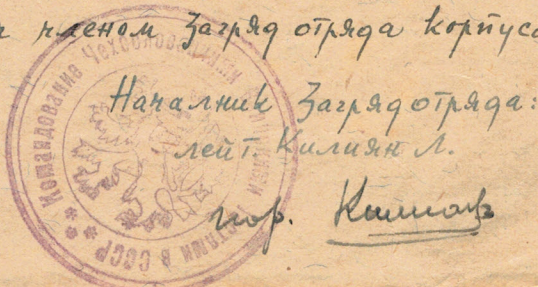 членом Заград отряда корпуса
Началник Заградотряда:
лейт. Килиян Л.
пор.
Командование Чехословацкими Воинскими Частями в СССР